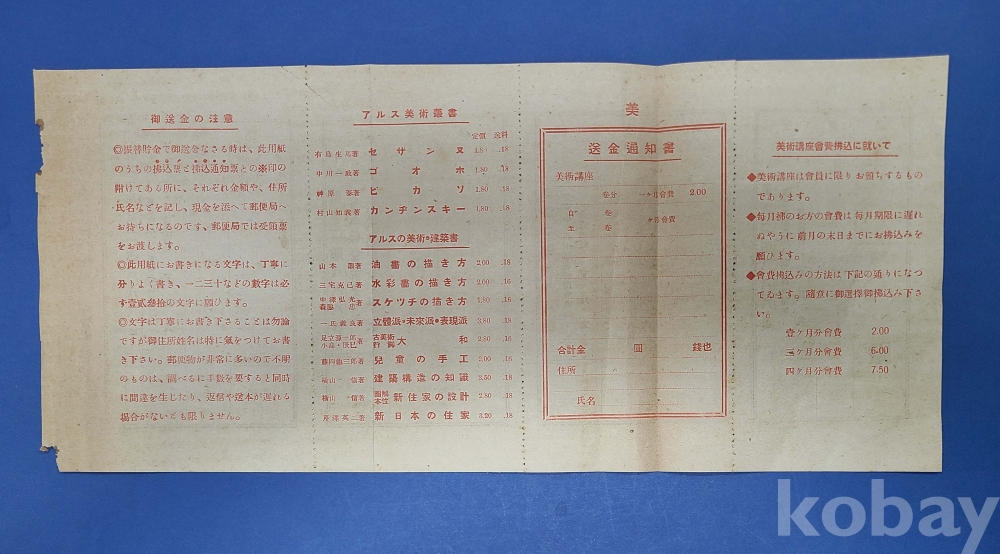 御送金の注意
◎振替貯金で御送金なさる時は、此用紙
のうちの拂込票と拂込通知票との※印の
附けてある所に、それぞれ金額や、住所
氏名などを記し、現金を添へて郵便局へ
お持ちになるのです、郵便局では受領票
をお渡します。
◎此用紙にお書きになる文字は、丁寧に
分りよく書き、一二三十などの數字は必
ず壹貳參拾の文字に願ひます。
◎文字は丁寧にお書き下さることは勿論
ですが御住所姓名は特に氣をつけてお書
き下さい。郵便物が非常に多いので不明
のものは、調べるに手數を要すると同時
に間違を生じたり、返信や送本が遲れる
場合がないとも限りません。
アルス美術叢書
定價 送料
有島生馬著 セザンヌ 1.80 .18
中川一政著 ゴオホ 1.80 .18
神原泰著 ピカソ 1.80 .18
村山知義著 カンヂンスキー 1.80 .18
アルスの美術・建築書
山本鼎著 油畫の描き方 2.00 .18
三宅克己著 水彩畫の描き方 2.00 .16
中澤弘光 森脇忠著 スケツチの描き方 1.80 .16
一氏義良著 立體派・未來派・表現派 3.80 .18
足立源一郎 小島貞巳著 古美術行脚 大和 2.80 .16
藤岡龜三郎著 兒童の手工 2.00 .16
横山信著 建築構造の知識 3.50 .18
横山信著 新住家の設計 2.80 .18
芹澤英二著 新日本の住家 3.20 .18
美
送金通知書
美術講座
卷分 一ヶ月會費 2.00
自 卷 ヶ月會費
至 卷
合計金 圓 錢也
住所
氏名
美術講座會費拂込に就いて
◆美術講座は會員に限りお頒ちするもの
であります。
◆每月拂のお方の會費は每月期限に遲れ
ぬやうに前月の末日までにお拂込みを
願ひます。
◆會費拂込みの方法は下記の通りになつ
てゐます。隨意に御選擇御拂込み下さ
い。
壹ヶ月分會費 2.00
三ヶ月分會費 6.00
四ヶ月分會費 7.50
kobay